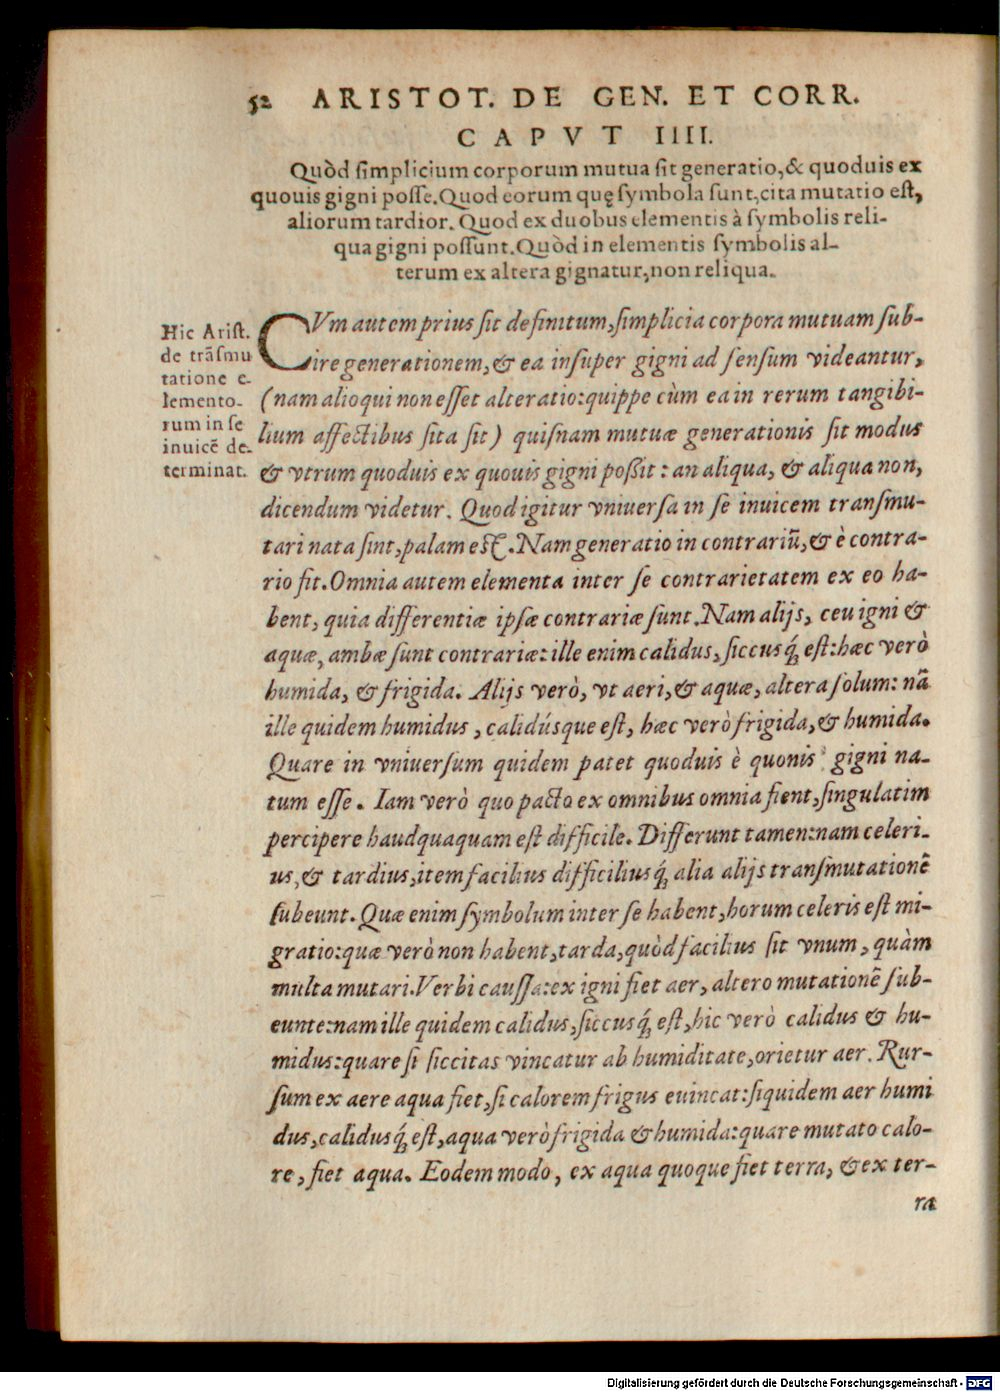 52 ARISTOT. DE GEN. ET CORR.
CAPVT IIII.
Quòd simplicium corporum mutua sit generatio, & quoduis ex
quouis gigni posse. Quod eorum quę symbola sunt, cita mutatio est,
aliorum tardior. Quod ex duobus elementis à symbolis reli-
qua gigni possunt. Quòd in elementis symbolis al-
terum ex altera gignatur, non reliqua.
Hic Arist.
de trãsmu
tatione e-
lemento-
rum in se
inuicẽ de-
terminat.
CVm autem prius sit definitum, simplicia corpora mutuam sub-
ire generationem, & ea insuper gigni ad sensum videantur,
(nam alioqui non esset alteratio: quippe cùm ea in rerum tangibi-
lium affectibus sita sit) quisnam mutuæ generationis sit modus
& vtrum quoduis ex quouis gigni poßit: an aliqua, & aliqua non,
dicendum videtur. Quod igitur vniuersa in se inuicem transmu-
tari nata sint, palam est. Nam generatio in contrariũ, & è contra-
rio fit. Omnia autem elementa inter se contrarietatem ex eo ha-
bent, quia differentiæ ipsæ contrariæ sunt. Nam alijs, ceu igni &
aquæ, ambæ sunt contrariæ: ille enim calidus, siccusq́; est: hæc verò
humida, & frigida. Alijs verò, vt aeri, & aquæ, altera solum: nã
ille quidem humidus, calidúsque est, hæc verò frigida, & humida.
Quare in vniuersum quidem patet quoduis è quonis gigni na-
tum esse. Iam verò quo pacto ex omnibus omnia fient, singulatim
percipere haudquaquam est difficile. Differunt tamen: nam celeri-
us, & tardius, item facilius difficiliusq́; alia alijs transmutationẽ
subeunt. Quæ enim symbolum inter se habent, horum celeris est mi-
gratio: quæ verò non habent, tarda, quòd facilius sit vnum, quàm
multa mutari. Verbi caussa: ex igni fiet aer, altero mutationẽ sub-
eunte: nam ille quidem calidus, siccusq́; est, hic verò calidus & hu-
midus: quare si siccitas vincatur ab humiditate, orietur aer. Rur-
sum ex aere aqua fiet, si calorem frigus euincat: siquidem aer humi
dus, calidusq́; est, aqua verò frigida & humida: quare mutato calo-
re, fiet aqua. Eodem modo, ex aqua quoque fiet terra, & ex ter-
ra
Digitalisierung gefördert durch die Deutsche Forschungsgemeinschaft - DFG